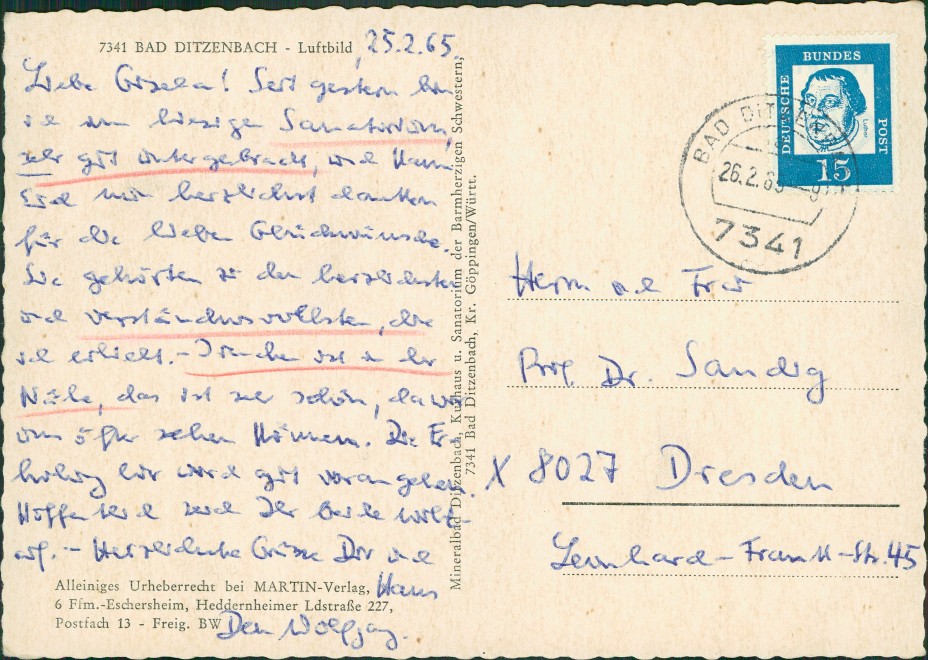 7341 BAD DITZENBACH - Luftbild
25.2.65.
Liebe Gisela! Seit gestern bin
ich im hiesigen Sanatorium,
sehr gut untergebracht, und kann
Euch nun herzlichst danken
für die lieben Glückwünsche.
Sie gehörten zu den herzlichsten
und verständnisvollsten, die
ich erhielt. - Irmchen ist in der
Nähe, das ist sehr schön, da wir
uns öfter sehen können. Die Er-
holung hier wird gut vorangehen.
Hoffentlich seid Ihr beide wohl-
auf. - Herzlichste Grüsse Dir und
Hans
Dein Wolfgang.
Alleiniges Urheberrecht bei MARTIN-Verlag,
6 Ffm.-Eschersheim, Heddernheimer Ldstraße 227,
Postfach 13 - Freig. BW
Mineralbad Ditzenbach, Kurhaus u. Sanatorium der Barmherzigen Schwestern,
7341 Bad Ditzenbach, Kr. Göppingen/Württ.
DEUTSCHE
BUNDES
POST
Luther
15
BAD DITZENBACH
26.2.65
7341
Herrn und Frau
Prof. Dr. Sandig
X 8027 Dresden
Leonhard-Frank-Str. 45